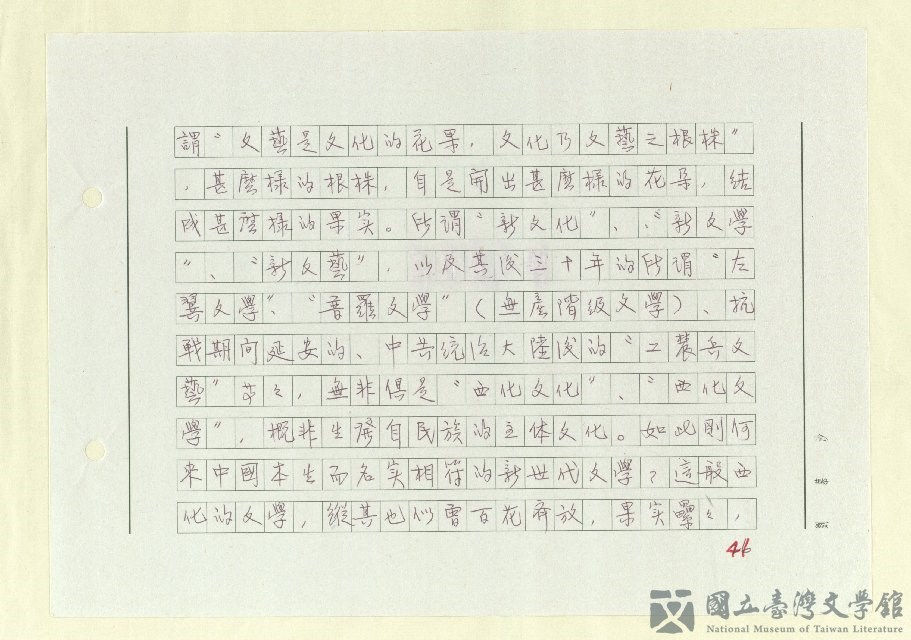 謂“文藝是文化的花果，文化乃文藝之根株”
，甚麼樣的根株，自是開出甚麼樣的花朵，結
成甚麼樣的果实。所謂“新文化”、“新文學
”、“新文藝”，以及其後三十年的所謂“左
翼文學”、“普羅文學”（無產階级文學）、抗
戰期间延安的、中共統治大陸後的“工農兵文
藝”等々，無非俱是“西化文化”、“西化文
學”，概非生發自民族的主体文化。如此則何
來中國本生而名实相符的新世代文學？這般西
化的文學，縱其也似曾百花齊放，果实壘々，
46
國立臺灣文學館
National Museum of Taiwan Literature